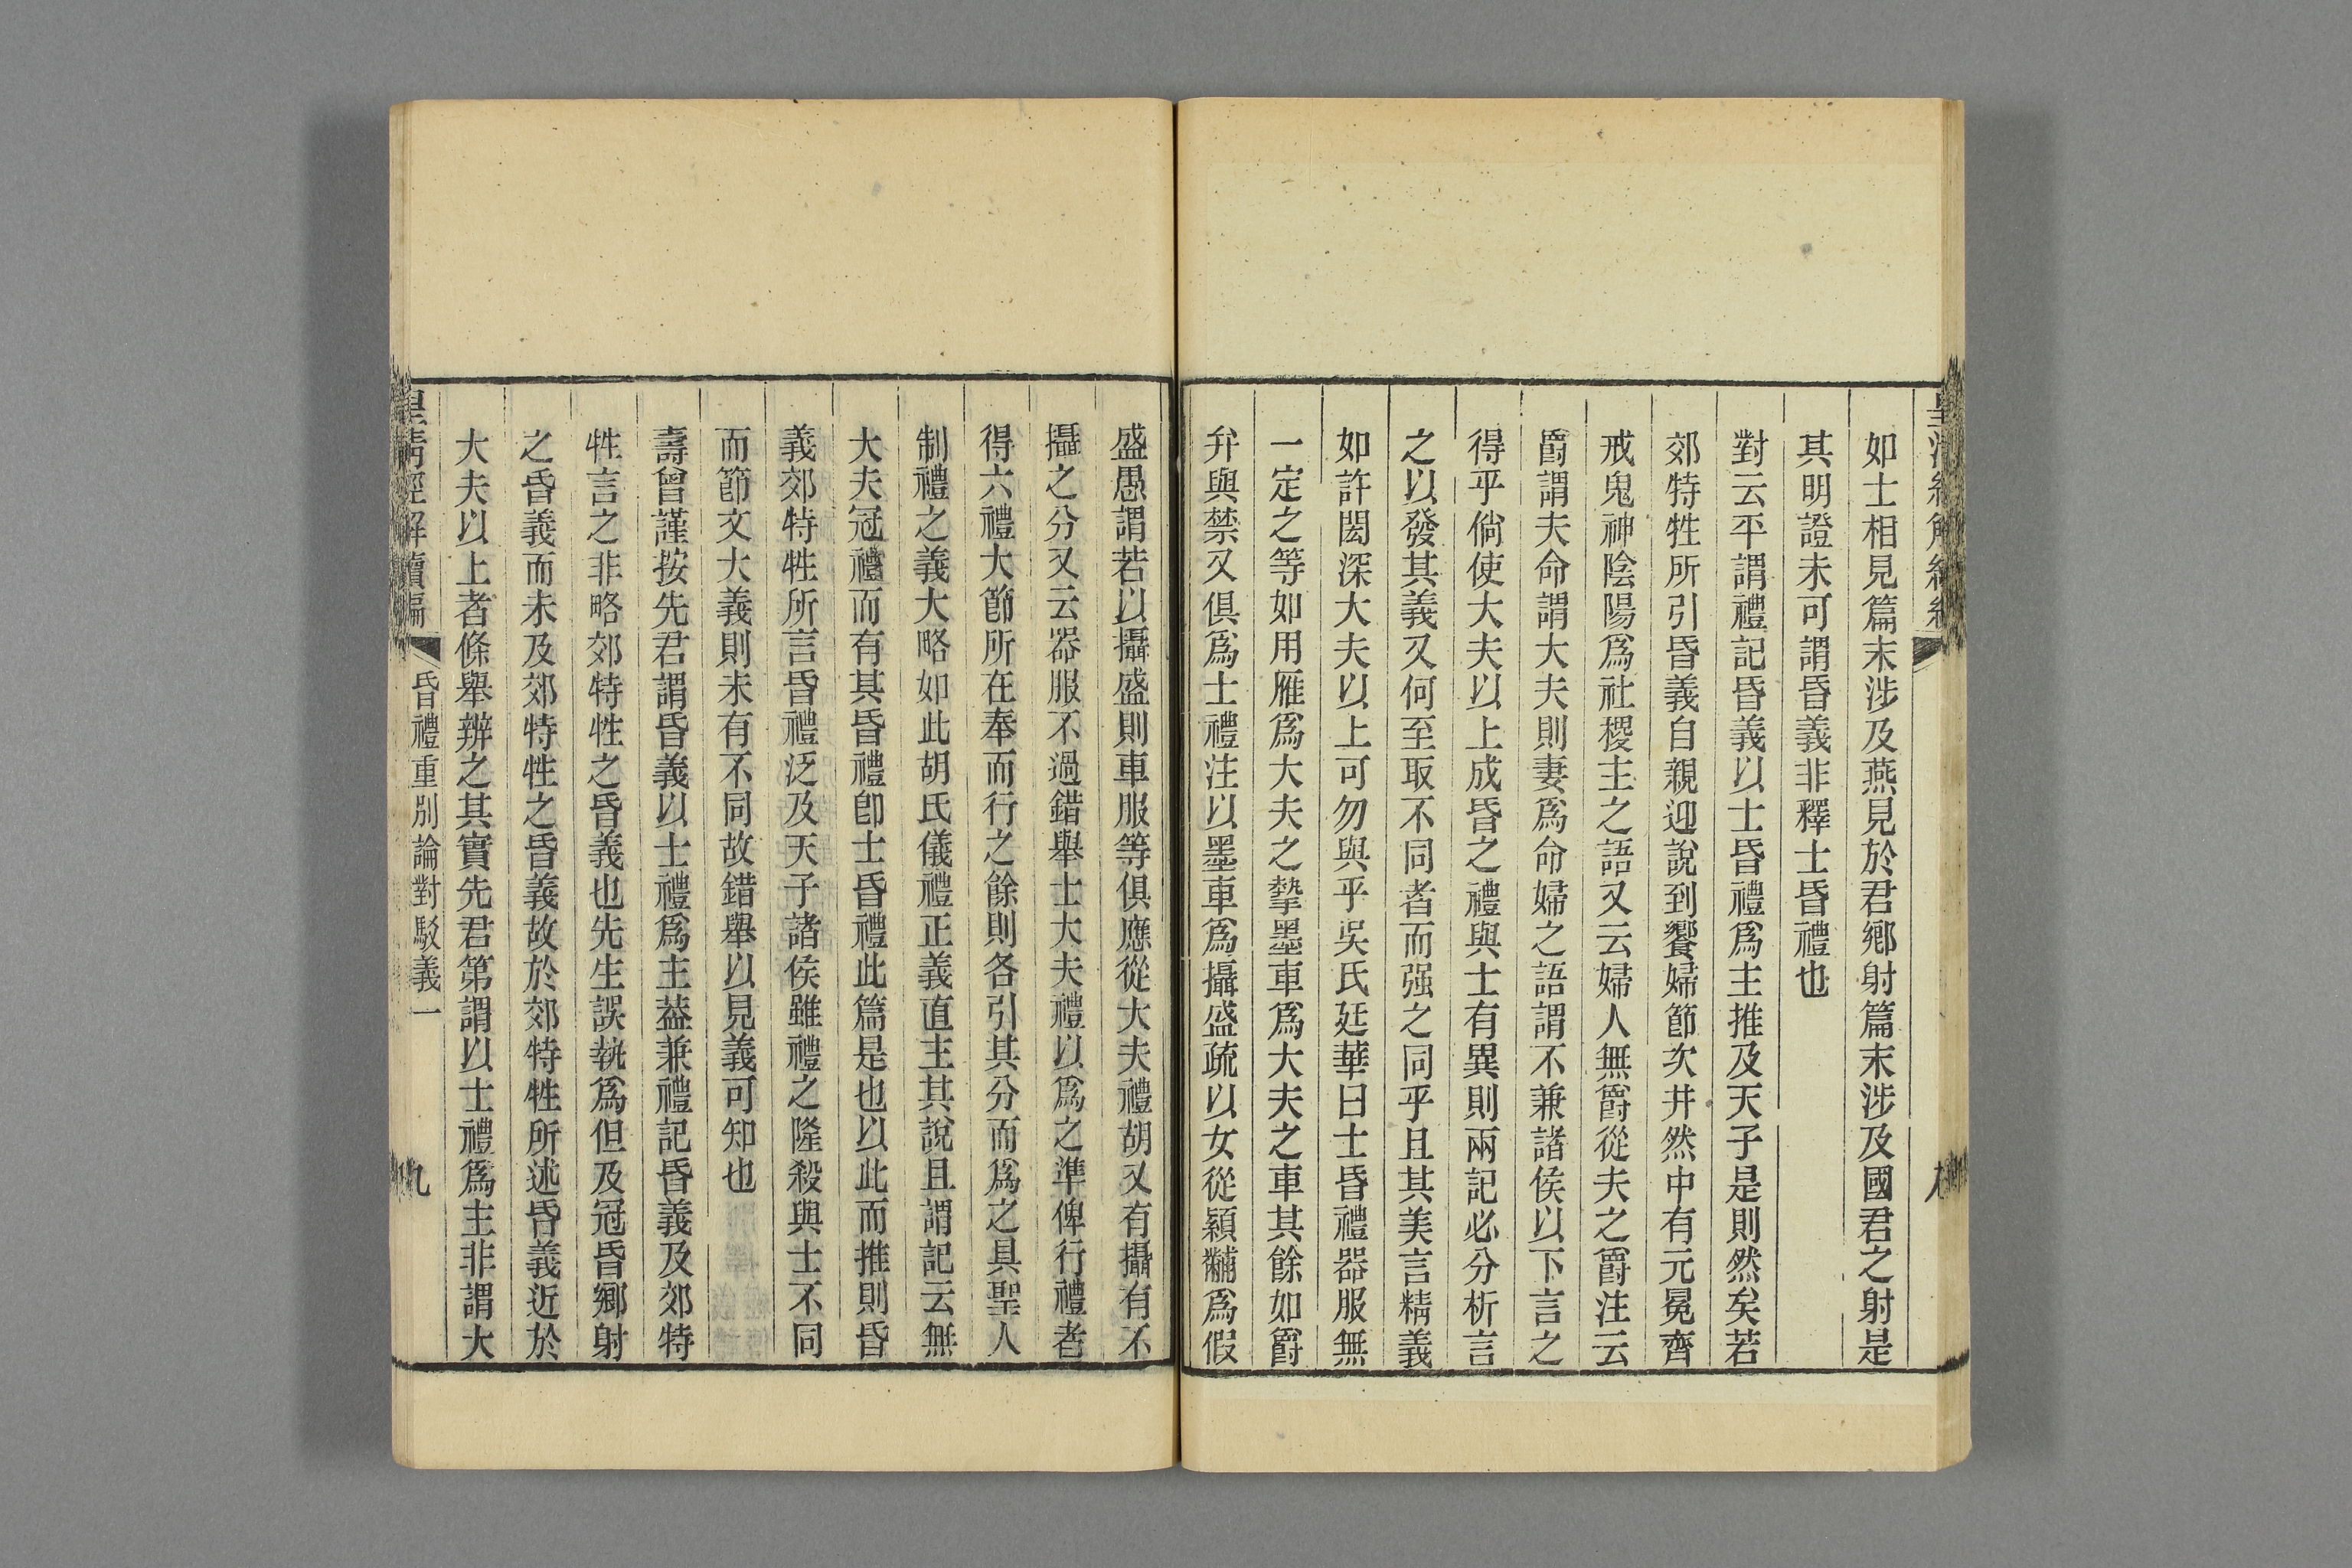 如士相見篇末涉及燕見於君鄉射篇末涉及國君之射是
其明證未可謂昏義非釋士昏禮也
對云平謂禮記昏義以士昏禮爲主推及天子是則然矣若
郊特牲所引昏義自親迎說到饗婦節次井然中有元冕齊
戒鬼神陰陽爲社稷主之語又云婦人無爵從夫之爵注云
爵謂夫命謂大夫則妻爲命婦之語謂不兼諸侯以下言之
得乎倘使大夫以上成昏之禮與士有異則兩記必分析言
之以發其義又何至取不同者而强之同乎且其美言精義
如許閎深大夫以上可勿與乎吳氏廷華曰士昏禮器服無
一定之等如用雁爲大夫之摯墨車爲大夫之車其餘如爵
弁與禁又俱爲士禮注以墨車爲攝盛疏以女從潁黼爲假
盛愚謂若以攝盛則車服等俱應從大夫禮胡又有攝有不
攝之分又云器服不過錯舉士大夫禮以爲之準俾行禮者
得六禮大節所在奉而行之餘則各引其分而爲之具聖人
制禮之義大略如此胡氏儀禮正義直主其說且謂記云無
大夫冠禮而有其昏禮卽士昏禮此篇是也以此而推則昏
義郊特牲所言昏禮泛及天子諸侯雖禮之隆殺與士不同
而節文大義則未有不同故錯舉以見義可知也
壽曾謹按先君謂昏義以士禮爲主葢兼禮記昏義及郊特
牲言之非略郊特牲之昏義也先生誤執爲但及冠昏鄉射
之昏義而未及郊特牲之昏義故於郊特牲所述昏義近於
大夫以上者條舉辨之其實先君第謂以士禮爲主非謂大
皇清經解續編
昏禮重別論對駁義一
九